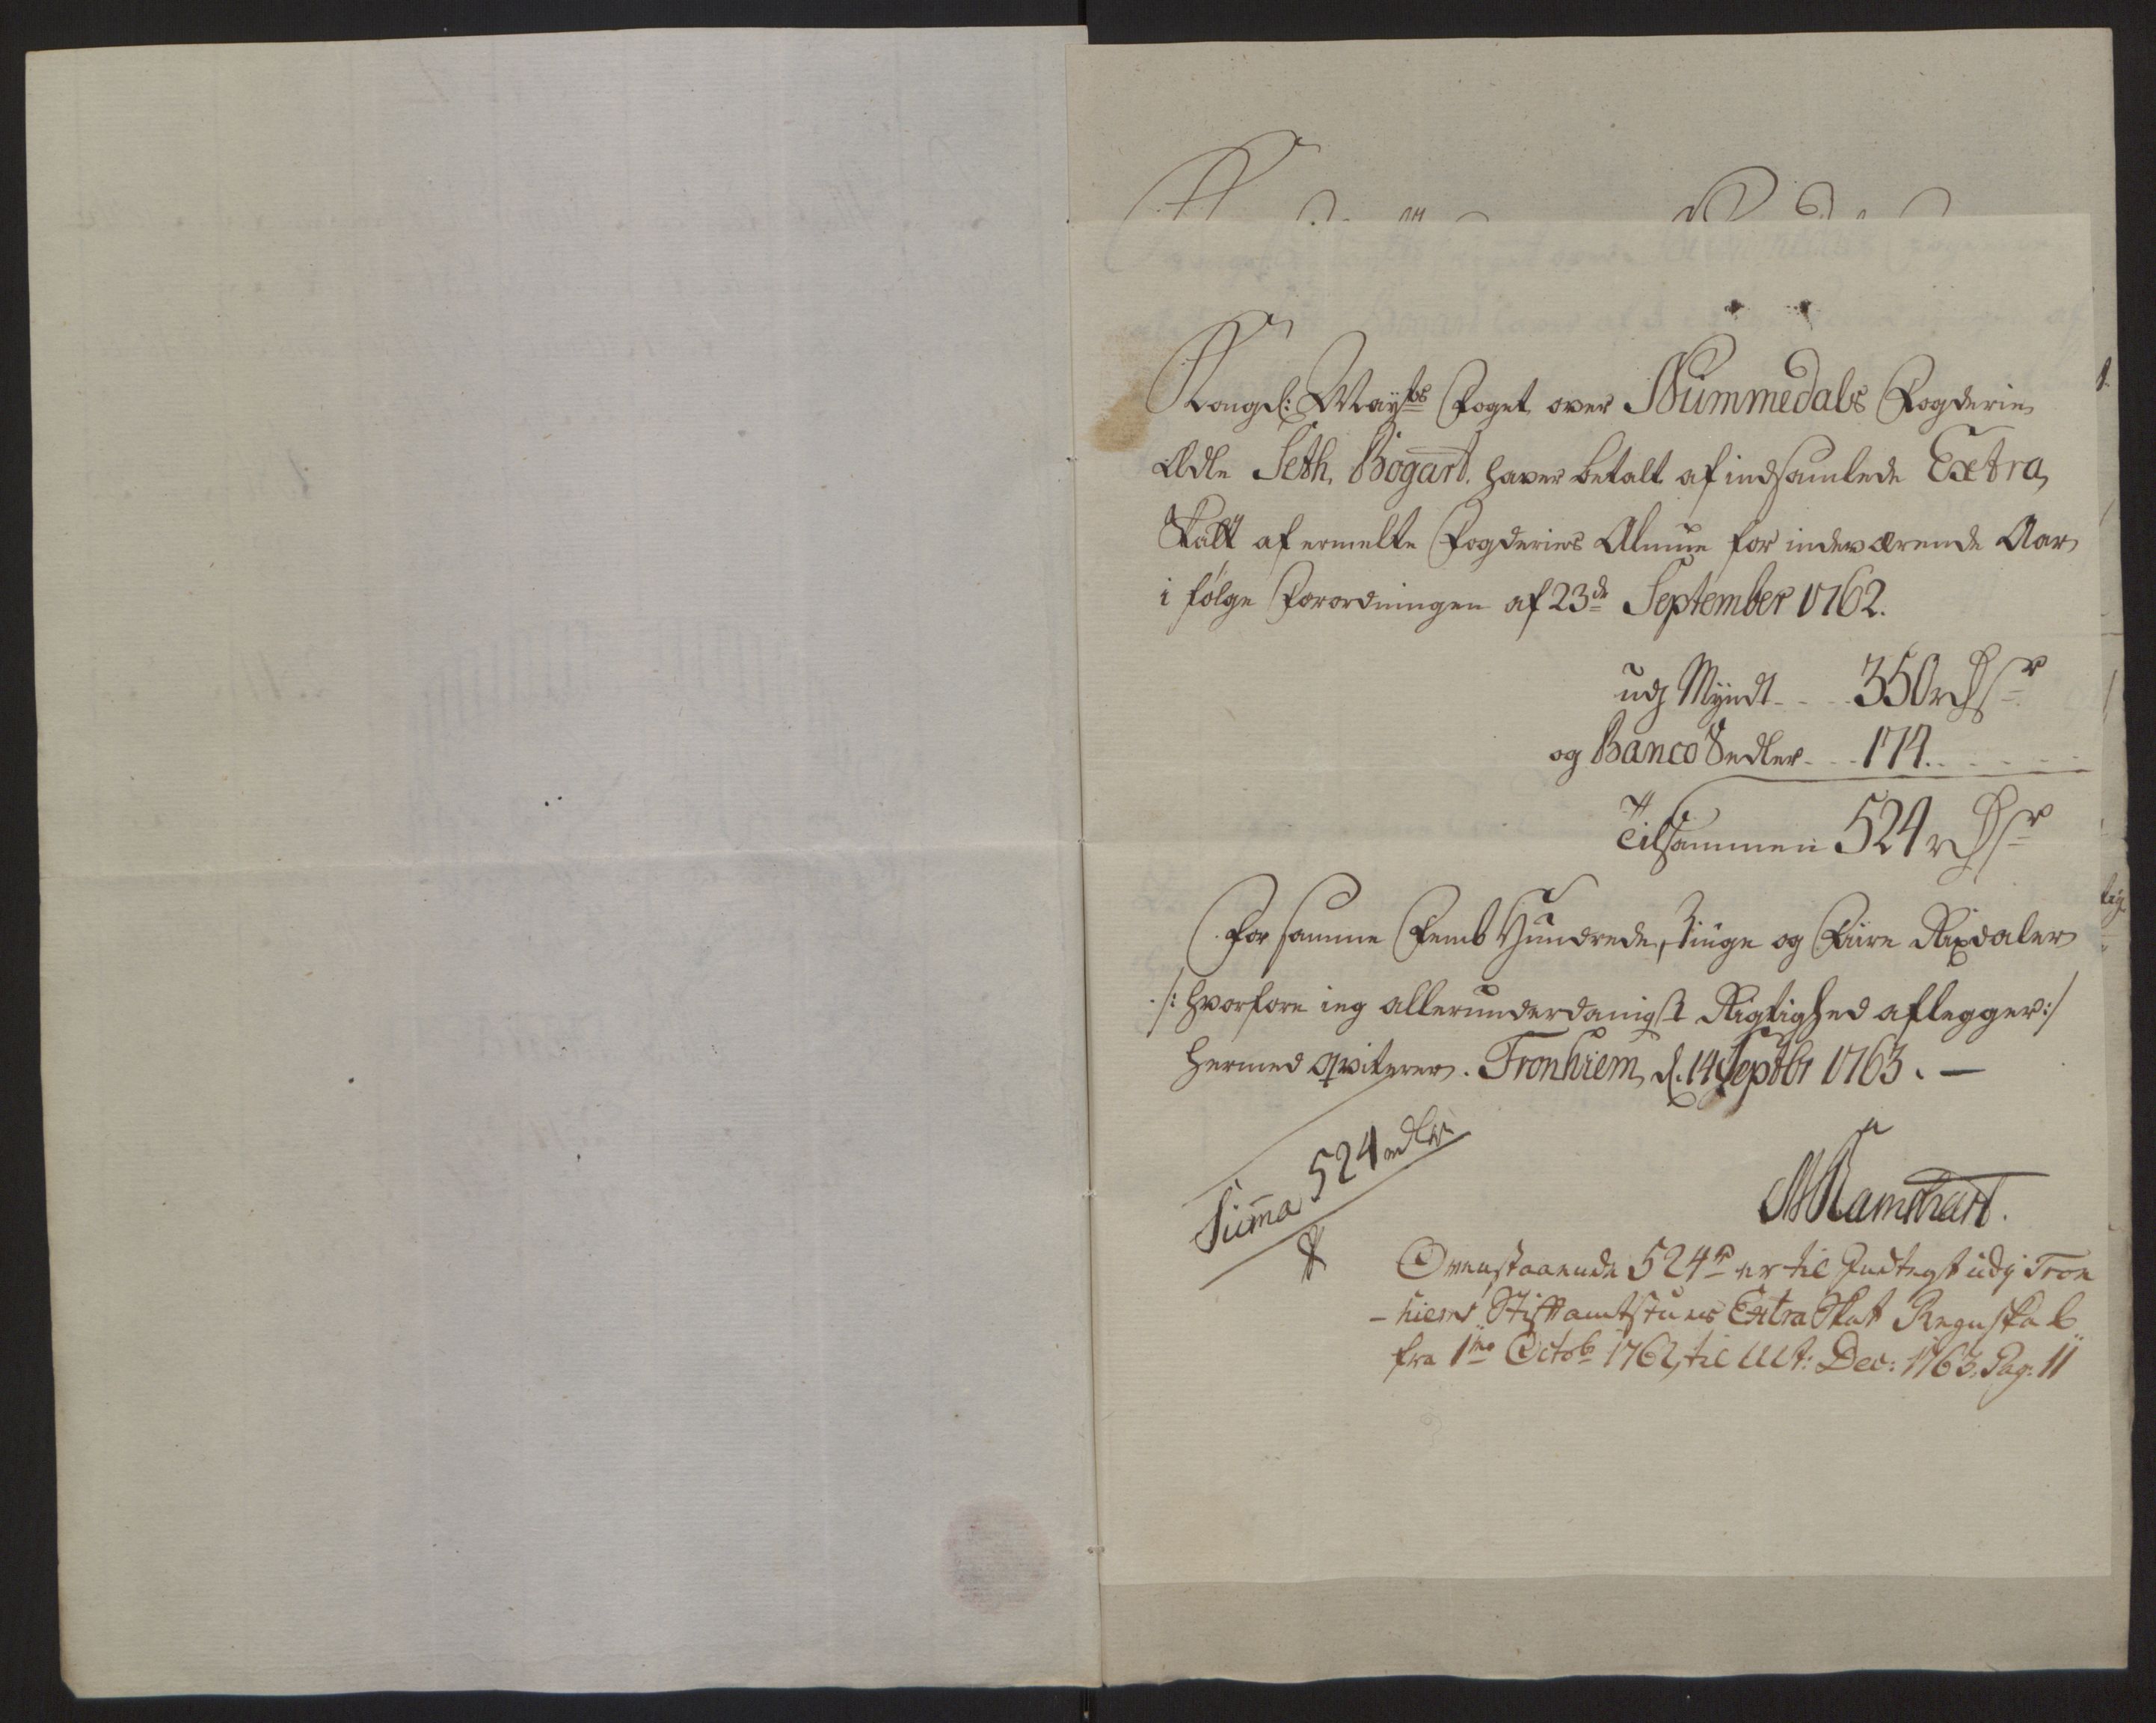 Kongl: Mayts Foget over Nummedals Fogderie
Ædle Seth. Bogart. haver betalt af indsamlede Extra
Skatt af ermelte Fogderies Almue for indeværende Aar
i følge Forordningen af 23de September 1762.
udj Myndt - - - 350 rdlr
og Banco Sedler - - - 174. - - - -
Tilsammen 524 rdlr
For samme Femb Hundrede, Tiuge og Fiire Rixdaler
/: hvorfore ieg allerunderdanigst Rigtighed aflegger :/
hermed qviterer. Tronhiem, d. 14 Septbr 1763. —
Suma 524 rdlr
Ovenstaaende 524 rd er til Indtegt udj Tron
- hiems Stiftamtstues Extra Skat Regnskab
fra 1mo Octobr 1762, til Ult: Dec: 1763. Pag: 11